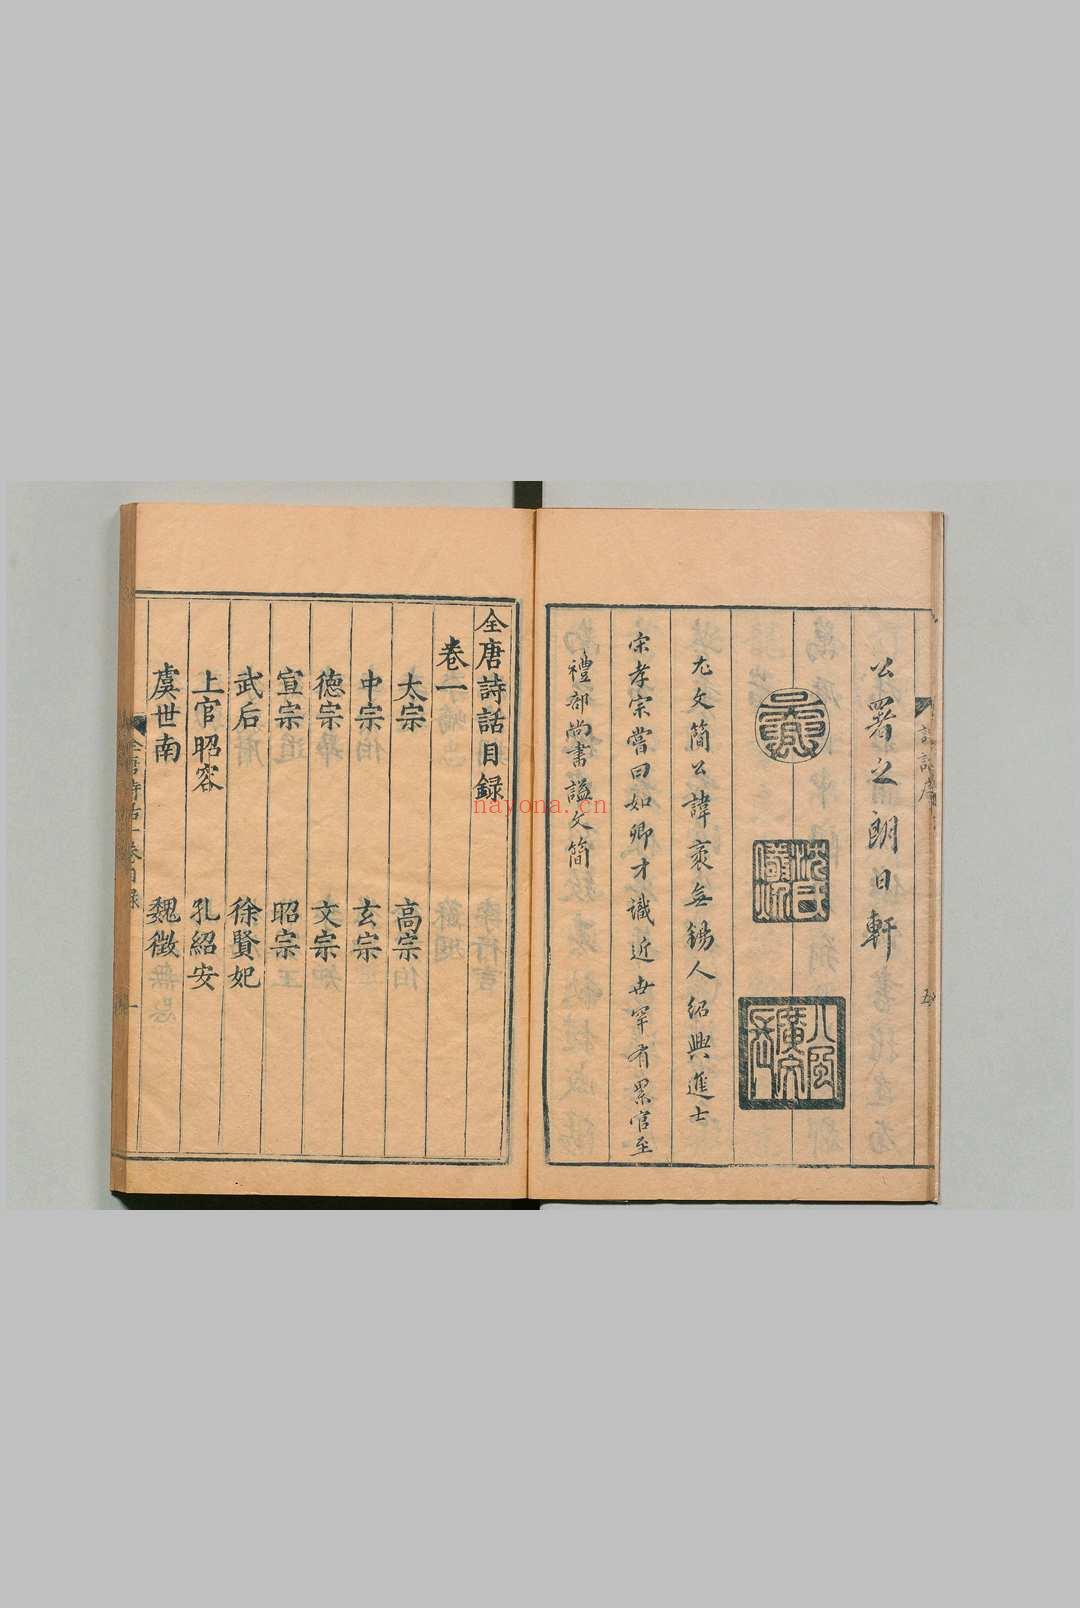 公署之朗日軒
尤文簡公諱袤無錫人紹興進士
宋孝宗嘗曰如卿才識近世罕有累官至
禮部尚書謚文簡
全唐詩話目録
卷一
太宗 高宗
中宗 玄宗
德宗 文宗
宣宗 昭宗
武后 徐賢妃
上官昭容 孔紹安
虞世南 魏徵
nayona.cn